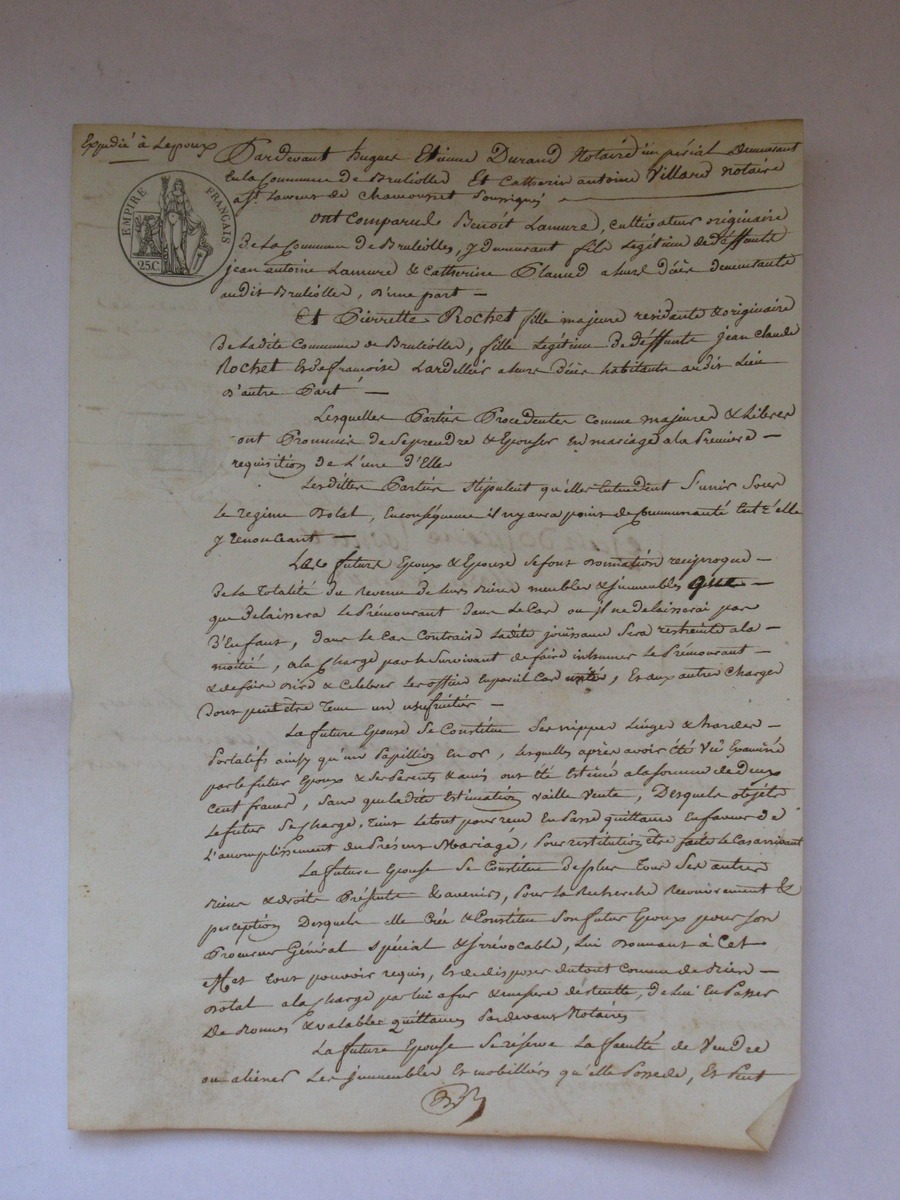 Expedié à Lepoux
Pardevant hugues Etienne Durand Notaire imperial demeurant
En la Commune de Brulioller Et Catherin antoine Villard notaire
a St. Laurent de Chamousset Soussignés
EMPIRE FRANÇAIS
25C
ont Comparu Benoît Lamure, cultivateur originaire
de La Commune de Brulioller, y demeurant fils Legitime de deffunts
jean antoine Lamure & Catherine demeurante
audit Brulioller, d'une part —
Et Pierrette Rochet fille majeure residente & originaire
de Ladite Commune de Brulioller, fille Legitime de deffunts jean Claude
Rochet Et de francoise Lardellier habitante audit Lieu
d'autre Part —
Lesquelles Parties Procedentes comme majeures & Libres
ont Prommis de Se prendre & Epouser En mariage a la Premiere —
requisition de L'une d'Elles
Lesdittes Parties Stipulent qu'elles Entendent S'unir Sous
Le regime Dotal, En conséquence il n'y aura point de Communauté
y renoncant —
Les futurs Epoux & Epouse Se font donnation reciproque —
de La Totalité du Revenu de leurs Biens meubles & immeubles que —
que delaissera Le Prémourant dans Le Cas ou il ne delaisserai pas
d'Enfant, dans Le Cas Contraire Ladite jouissance Sera restreinte a la —
moitié, a la Charge par le Survivant de faire inhumer Le Prémourant —
& de faire dire & Celebrer Les offices En pareil Cas usités, Et aux autres Charges
dont peut être Tenu un usufruitier —
La future Epouse Se Constitue Ses nippes Linges & hardes —
Portatifs ainsy qu'un Papillon En or, Lesquelles après avoir été Vû Examiné
par le futur Epoux & Ses Parents & amis ont été Estimé a la Somme de deux
Cent francs, Sans que Ladite Estimation vaille Vente, Desquels objets
Le futur Se Charge, En Passe quittance En faveur de
L'accomplissement du Présent Mariage, Pour restitution être faite Le Cas arrivant
La future Epouse Se Constitue De plus Tous Ses autres
Biens & droits Présents & avenirs, Pour La Recherche Recouvrement &
perception Desquels elle Crée & Constitue Son futur Epoux pour Son
Procureur Général Spécial & irrévocable, Lui donnant à Cet
Effet tout pouvoir requis, Et de disposer du tout Comme de Biens —
dotal a la Charge par lui a fur & mesure de recette, de Lui En Passer
De Bonnes & valables quittances Pardevant Notaires
La future Epouse Se réserve La faculté de Vendre
ou aliener Les immeubles Et mobilliers qu'elle Possede, Et Peut